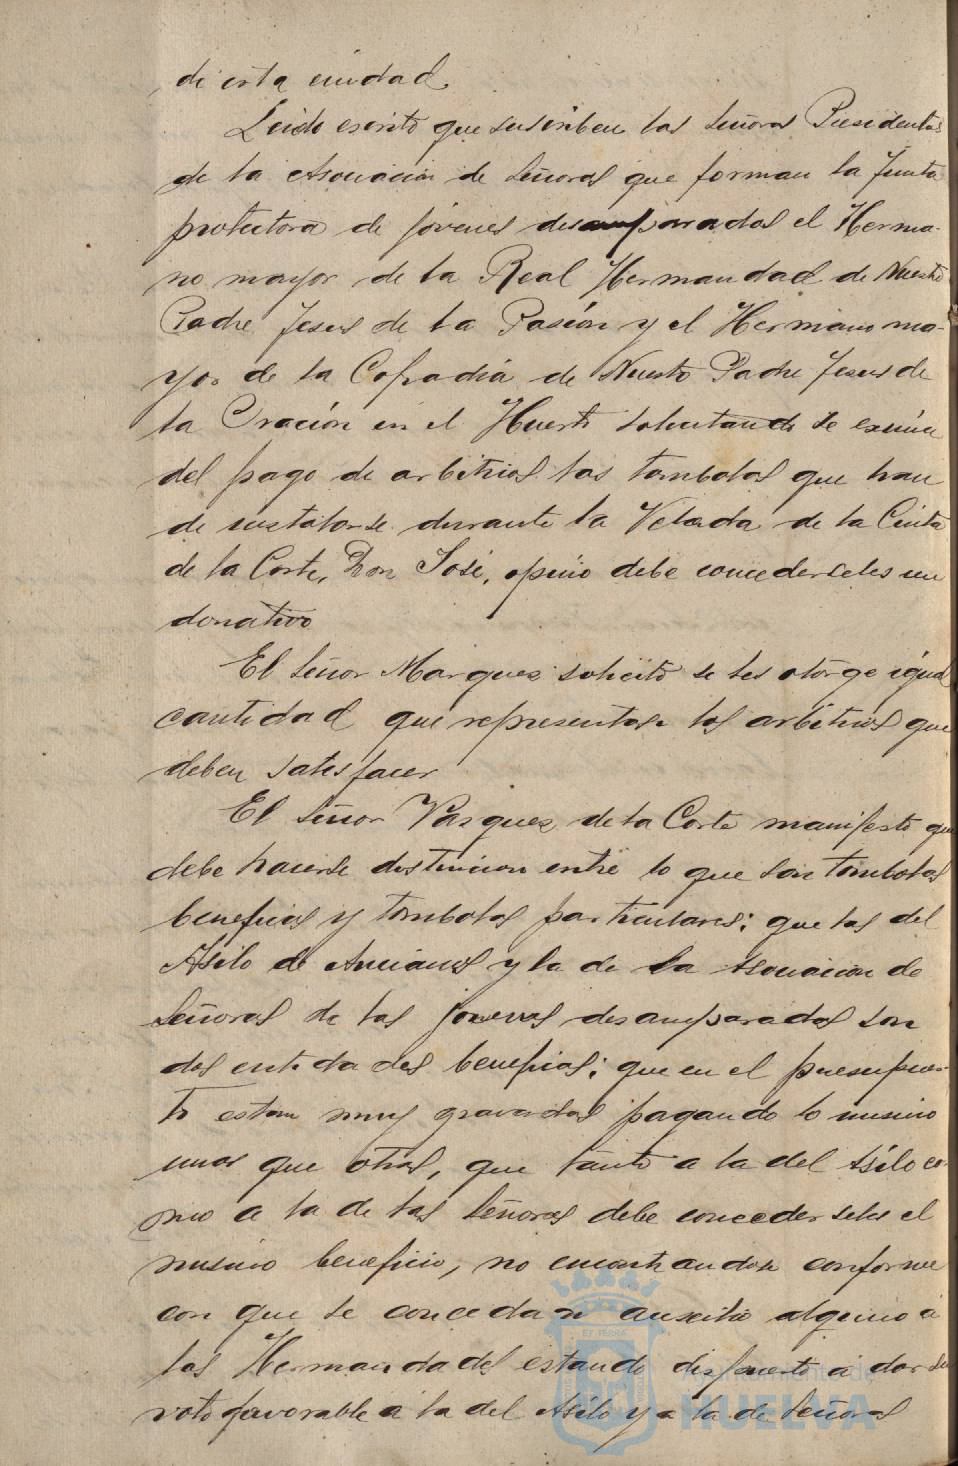 de esta ciudad.
Leido escrito que suscriben las Señoras Presidentas
de la Asociación de Señoras que forman la Junta
protectora de jóvenes desamparadas el Herma-
no mayor de la Real Hermandad de Nuestro
Padre Jesus de la Pasión y el Hermano ma-
yor de la Cofradía de Nuestro Padre Jesus de
la Oración en el Huerto solicitando se exima
del pago de arbitrios las tombolas que han
de instalarse durante la Velada de la Cinta
de la Corte, Don José, opinó debe concederseles un
donativo
El Señor Marquez solicitó se les otorge igual
cantidad que representan los arbitrios que
deben satisfacer
El Señor Vazquez de la Corte manifestó que
debe hacerse distincion entre lo que son tombolas
beneficas y tombolas particulares; que las del
Asilo de Ancianos y la de la Asociacion de
Señoras de las jovenes desamparadas son
dos entidades beneficas; que en el presupues-
to estan muy gravadas pagando lo mismo
unas que otras, que tanto a la del Asilo co-
mo a la de las Señoras debe concederseles el
mismo beneficio, no encontrandose conforme
con que se concedan auxilio alguno á
las Hermandades estando dispuesto á dar su
voto favorable a la del Asilo y a la de Señoras
Ayuntamiento de
HUELVA